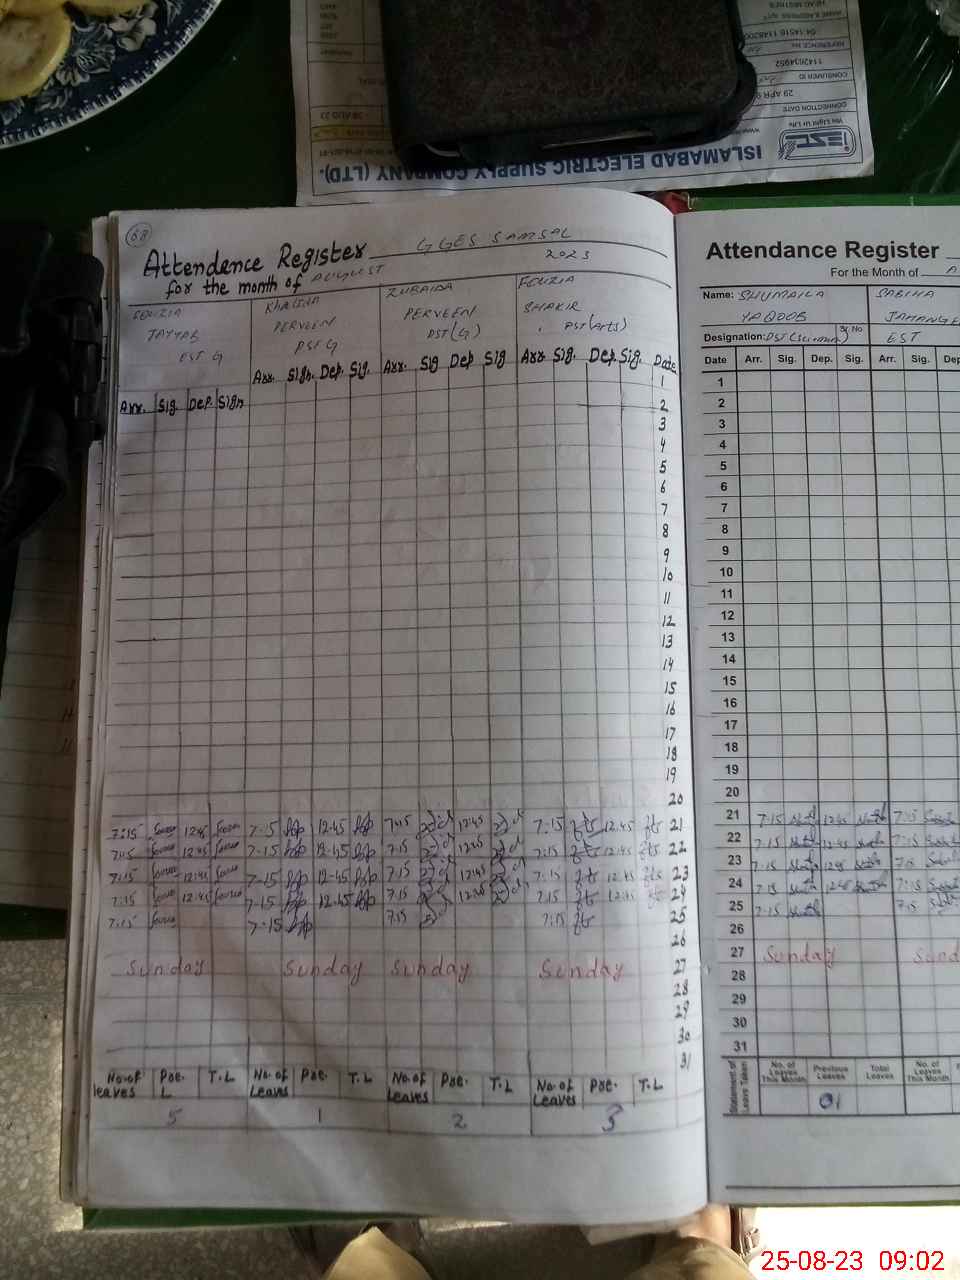 ISLAMABAD ELECTRIC SUPPLY COMPANY (LTD).
We Light Ur Life
CONNECTION DATE
CONSUMER ID
1142634952
REFERENCE No
68
Attendence Register GGES SAMSAL
for the month of AUGUST 2023
FOUZIA TAYYAB EST G
Khalida PERVEEN PST G
ZUBAIDA PERVEEN PST(G)
FOUZIA SHAKIR PST(Arts)
Arr. Sign. Dep. Sig. Arr. Sig Dep Sig Arr. Sig. Dep. Sig. Date
Arr. Sig. Dep. Sign
1
2
3
4
5
6
7
8
9
10
11
12
13
14
15
16
17
18
19
20
7:15 12:45 7-15 12-45 7:15 12:45 7-15 12.45 21
7:15 12:45 7-15 12-45 7:15 12:45 7:15 12:45 22
7:15 12:45 7-15 12-45 7:15 12:45 7:15 12:45 23
7:15 12:45 7-15 12-45 7:15 12:45 7:15 12:45 24
7:15 7-15 7:15 7:15 25
26
Sunday Sunday Sunday Sunday 27
28
29
30
31
No. of leaves Pre. L T.L No. of Leaves Pre. T.L No. of Leaves Pre. T.L No. of Leaves Pre. T.L
5 1 2 3
Attendance Register
For the Month of A
Name: SHUMAILA YAQOOB
SABIHA
Designation: PST (Science) Sr. No. EST
Date Arr. Sig. Dep. Sig. Arr. Sig. Dep
1
2
3
4
5
6
7
8
9
10
11
12
13
14
15
16
17
18
19
20
21 7-15 12:45 7:15
22 7.15 12:45 7:15
23 7-15 12:45 7:15
24 7-15 12:45 7:15
25 7-15 7:15
26
27 Sunday Sund
28
29
30
31
Statement of Leave Taken
No. of Leaves This Month Previous Leaves Total Leaves No. of Leaves This Month
01
25-08-23 09:02